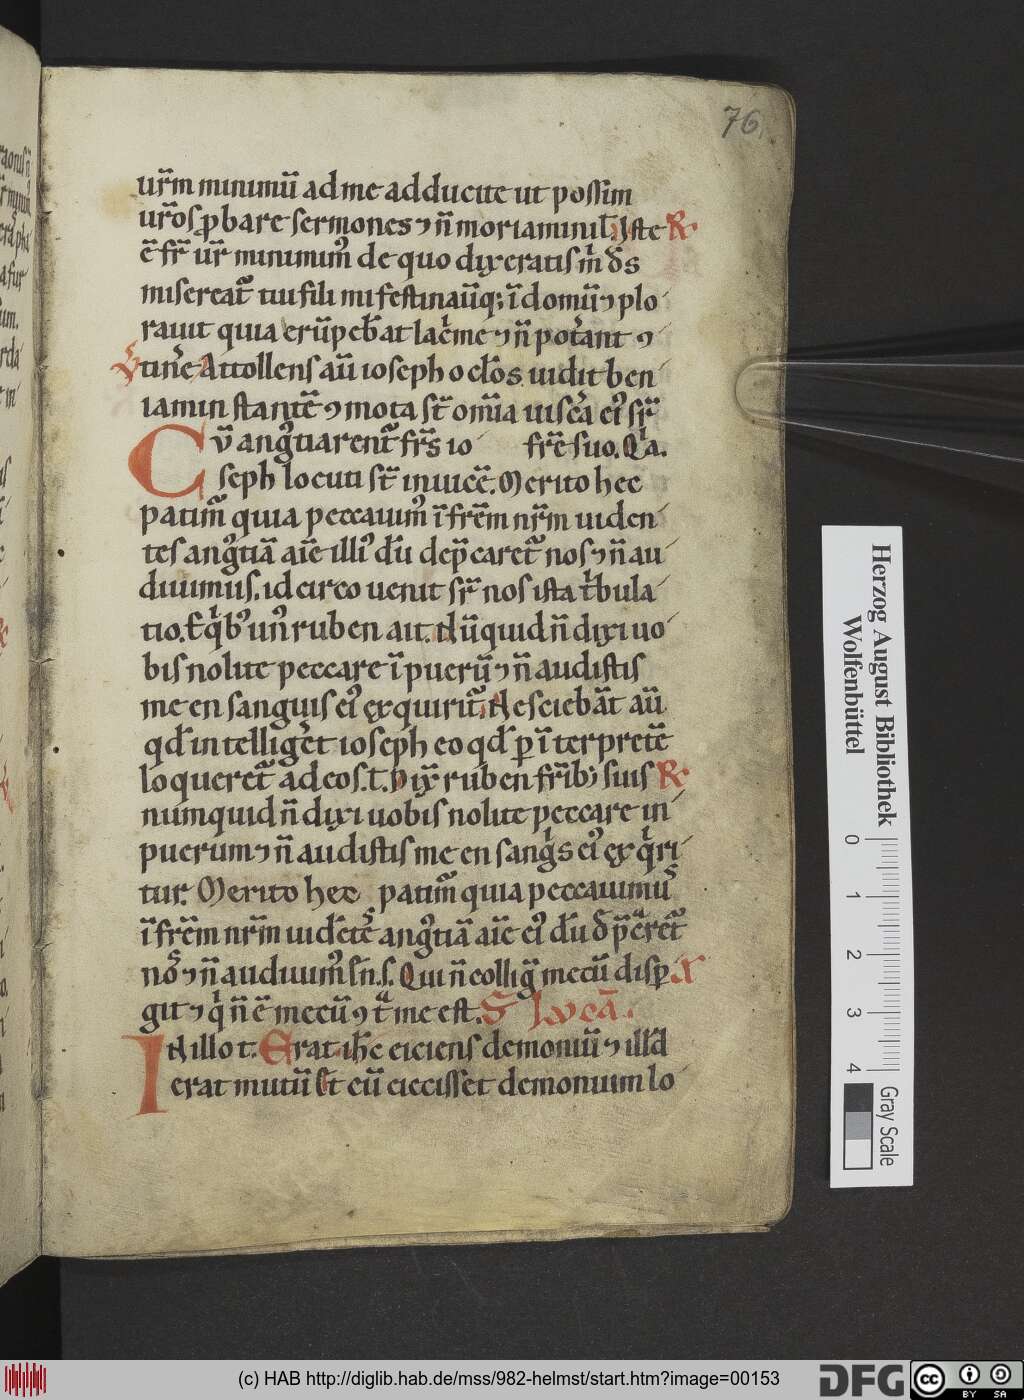 76
ur̄m minimū ad me adducite ut possim
ur̄os p̱bare sermones ⁊ n̄ moriamini. Iste R
ē fr̄ ur̄ minimꝰ de quo dixeratis m̄ ds̄
misereat᷑ tui fili mi festinauitq; ī domū ⁊ plo
rauit quia erūpeb̄ant lac̄me ⁊ n̄ pot̄ant ⁊
tin̄e Attollens aū ioseph oc̄los uidit ben
iamin stantē ⁊ mota st̄ om̄ia uisc̄a eiꝰ sr̄
Cū angꝰtiarent᷑ fr̄s io fr̄e suo. Q̄a.
seph locuti st̄ inuicē. Merito hec
patim᷑ quia peccauimꝰ ī fr̄em nr̄m uiden
tes angꝰtiā aīe illiꝰ dū dep̄caret᷑ nos ⁊ n̄ au
diuimus. idcirco uenit sr̄ nos ista t̄bula
tio. E q̄bꝰ unꝰ ruben ait. Nūquid n̄ dixi uo
bis nolite peccare ī puerū ⁊ n̄ audistis
me en sanguis eiꝰ exquirit᷑. Nesciebāt aū
qd̄ intelliḡet ioseph eo qd̄ p̱ īterpretē
loqueret᷑ ad eos. t. Dix̄ ruben fr̄ib; suis R
numquid n̄ dixi uobis nolite peccare in
puerum ⁊ n̄ audistis me en sanḡs eiꝰ exq̄ri
tur. Merito hec patim᷑ quia peccauimꝰ
ī fr̄em nr̄m uidētes angꝰtiā aīe eiꝰ dū dp̄caret᷑
nos ⁊ n̄ audiuimꝰ. Qui n̄ colliḡ mecū disp̱
git ⁊ q̄ n̄ ē mecū ⁊tᵃ me est. S. Lucā.
IN illo t. Erat ih̄c eiciens demoniū ⁊ illd̄
erat mutū Et cū eiecisset demonium lo
Herzog August Bibliothek
Wolfenbüttel
0 1 2 3 4
Gray Scale
(c) HAB http://diglib.hab.de/mss/982-helmst/start.htm?image=00153
DFG
cc BY SA